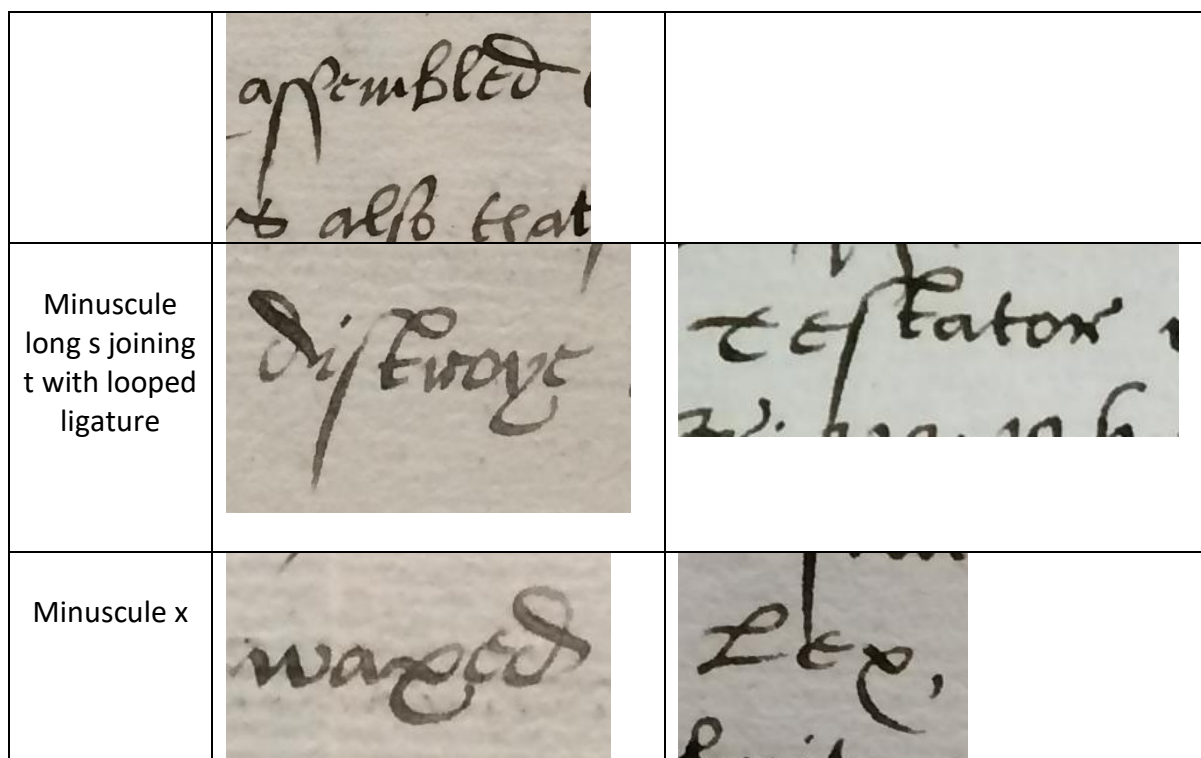 assembled
also that
Minuscule
long s joining
t with looped
ligature
distroye
Testator
Minuscule x
waxed
Lex,